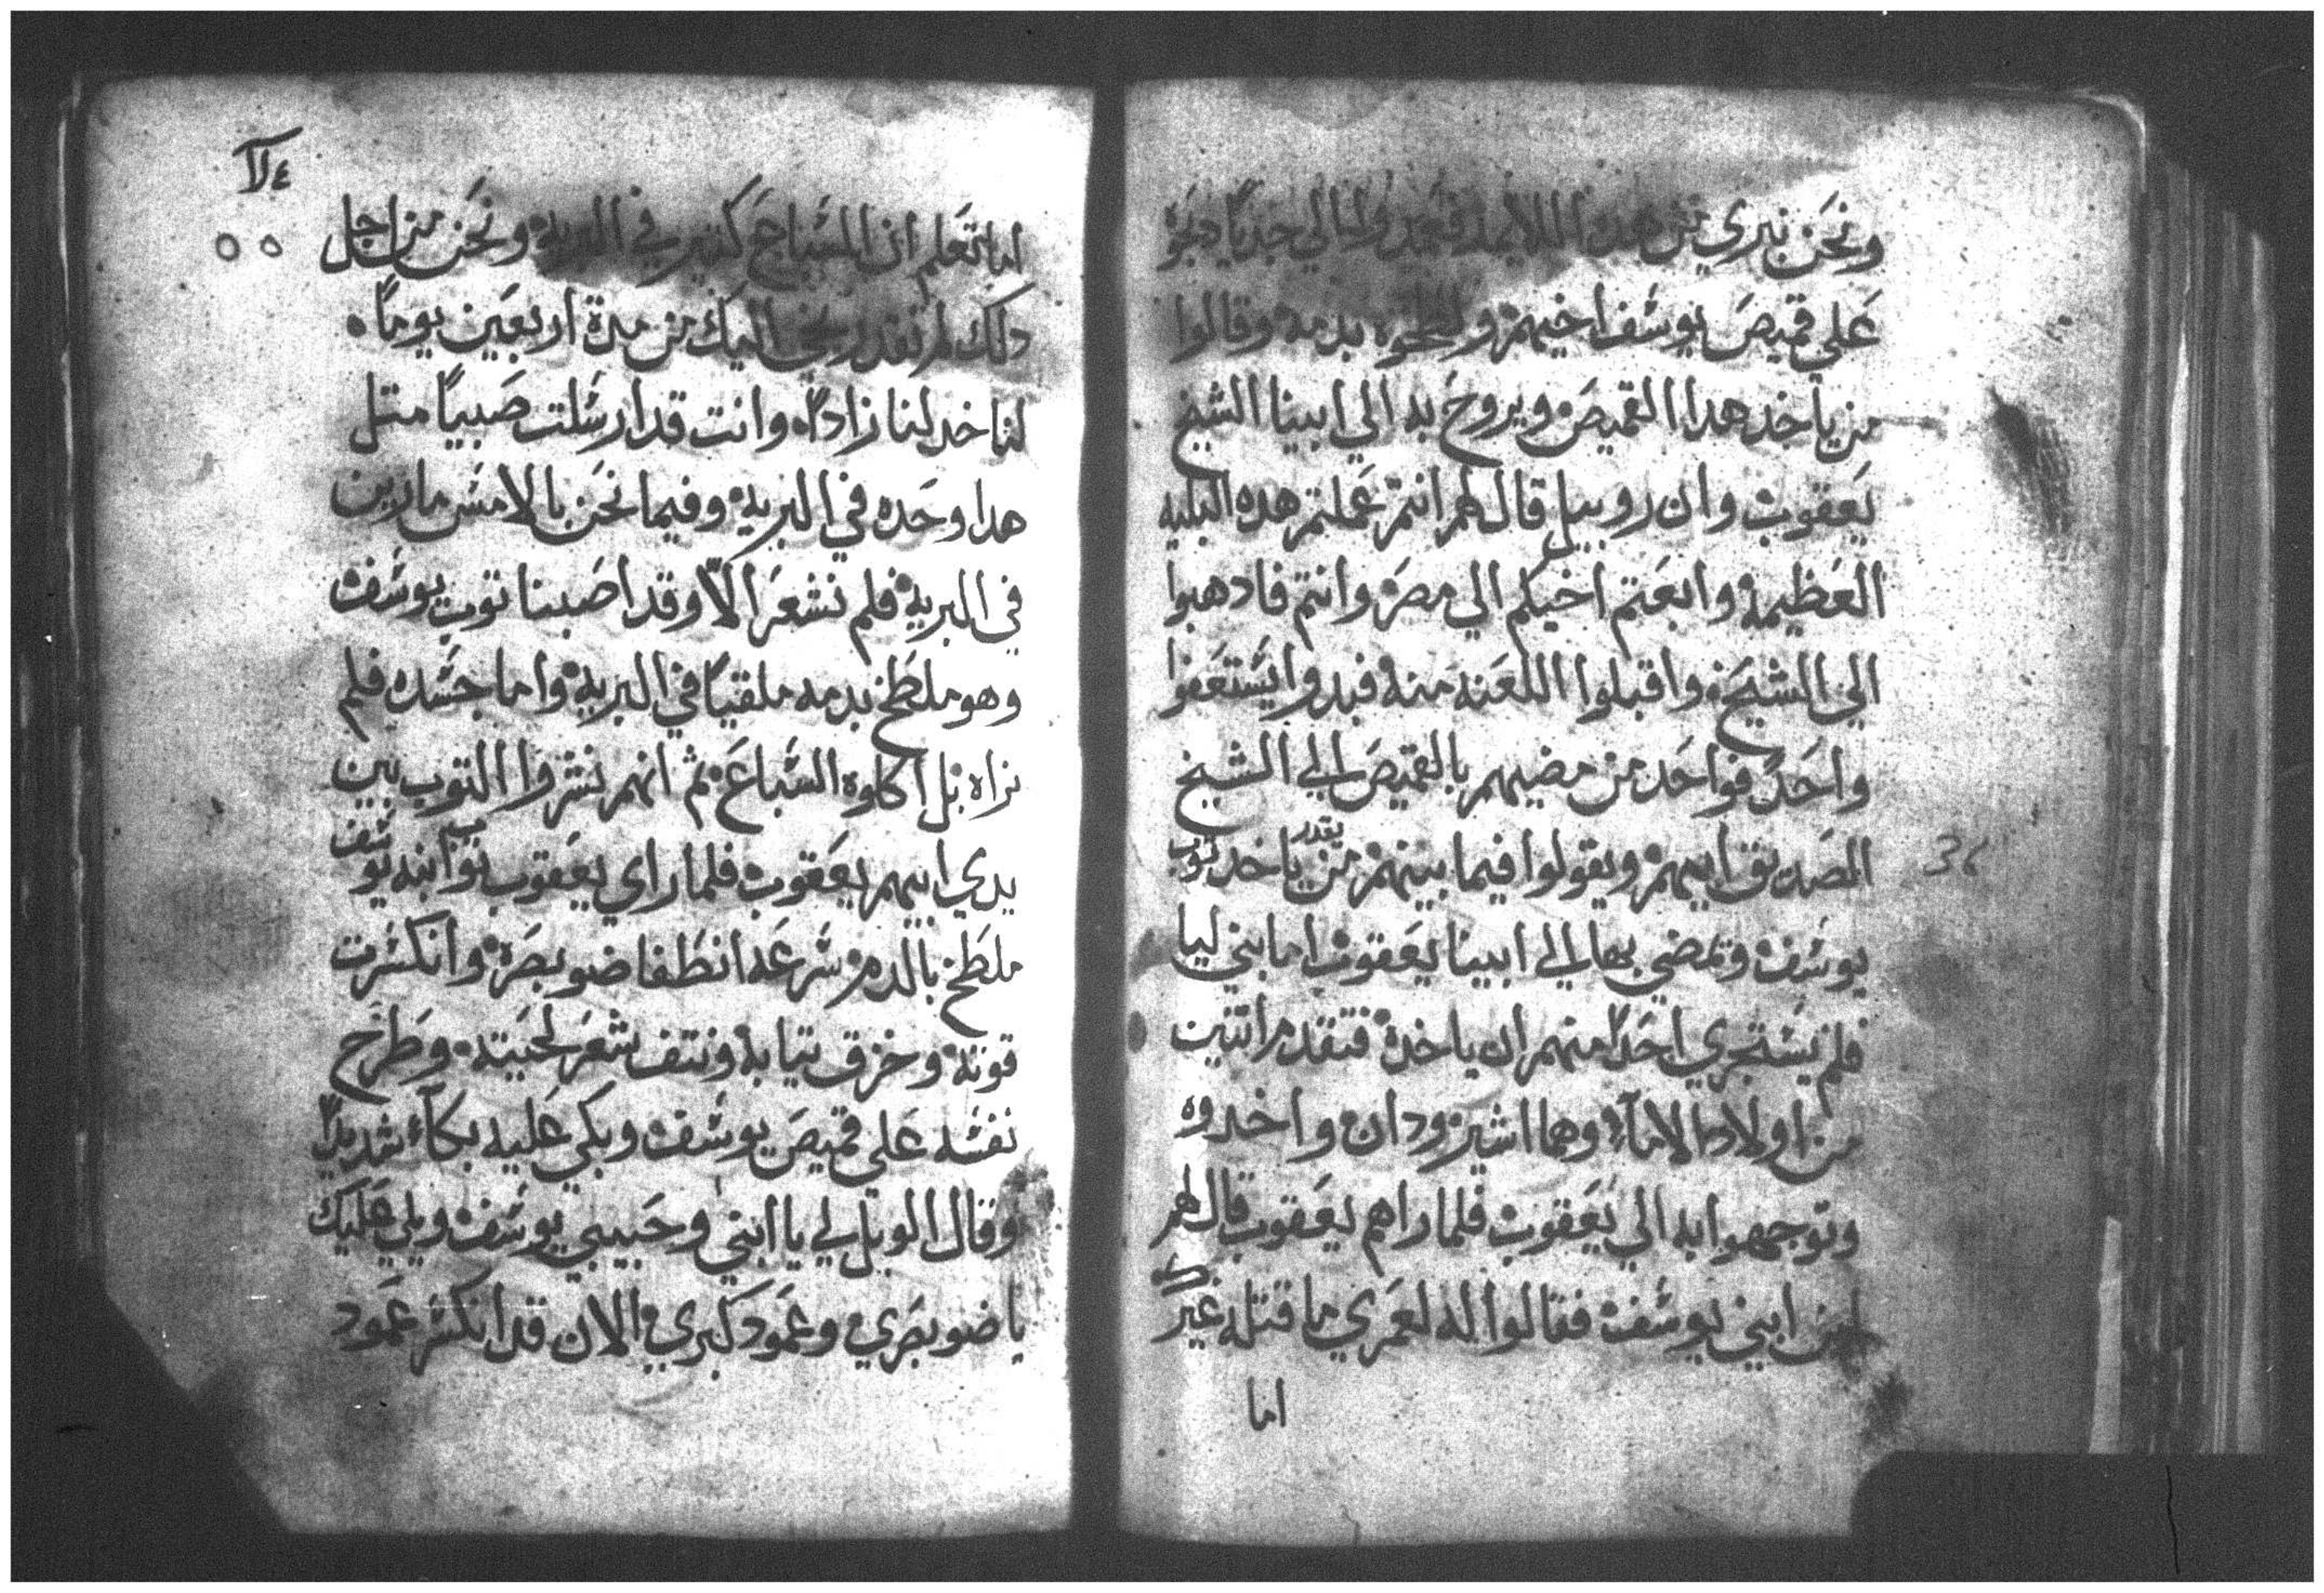 ونحن نبري من هده اللايمه فعمدوا الي جديًا دبحوه
علي قميص يوسف اخيهم ولطخوه بدمه وقالوا
من ياخد هدا القميص ويروح به الي ابينا الشيخ
يعقوب وان روبيل قال لهم انتم عملتم هده البليه
العظيمة وابعتم اخيكم الي مصر وانتم فادهبوا
الي الشيخ واقبلوا اللعنه منه فبدوا يستعفوا
واحدً فواحد من مضيهم بالقميص الي الشيخ
الصديق ابيهم ويقولوا فيما بينهم من يقدر ياخد توب
يوسف وتمضي بها الي ابينا يعقوب اما بني ليا
فلم يستجري احدًا منهم ان ياخده فتقدم اتنين
من اولاد الامآء وهما اشير ودان واخدوه
وتوجهوا به الي يعقوب فلما راهم يعقوب قال لهم
اين ابني يوسف فقالوا له لعمري ما قتله غيرك
اما
34
لآ٤
اما تعلم ان السباع كتير في البريه ونحن من اجل
دلك لم نقدر نجي اليك من مدة اربعين يومًا
لناخد لنا زادًا وانت قد ارسلت صبيًا متل
هدا وحده في البرية وفيما نحن بالامس مارين
في البرية فلم نشعر الّا وقد اصبنا توب يوسف
وهو ملطخ بدمه ملقيًا في البرية واما جسده فلم
نراه بل اكلوه السباع ثم انهم نشروا التوب بين
يدي ابيهم يعقوب فلما راي يعقوب توب ابنه يوسف
ملطخ بالدم سرعه انطفا ضو بصره وانكسرت
قوته وخرق تيابه ونتف شعر لحيته وطرح
نفسه علي قميص يوسف وبكي عليه بكآء شديدًا
وقال الويل لي يا ابني وحبيبي يوسف ويلي عليك
يا ضو بصري وعمود كبري الان قد انكسر عمود